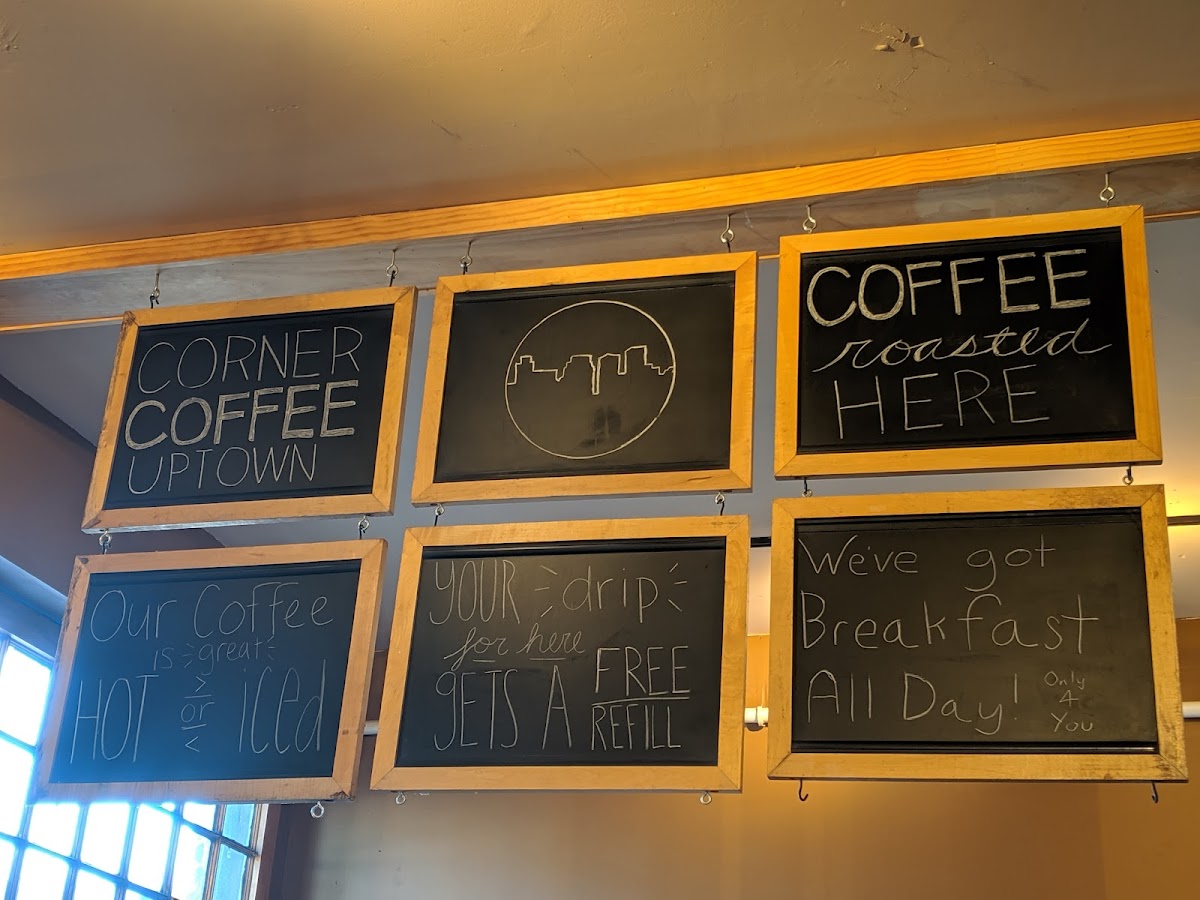 CORNER
COFFEE
UPTOWN
COFFEE
roasted
HERE
Our Coffee
is great
HOT <or> iced
YOUR drip
for here
gETS A FREE
REFILL
We've got
Breakfast
All Day! Only
4
You